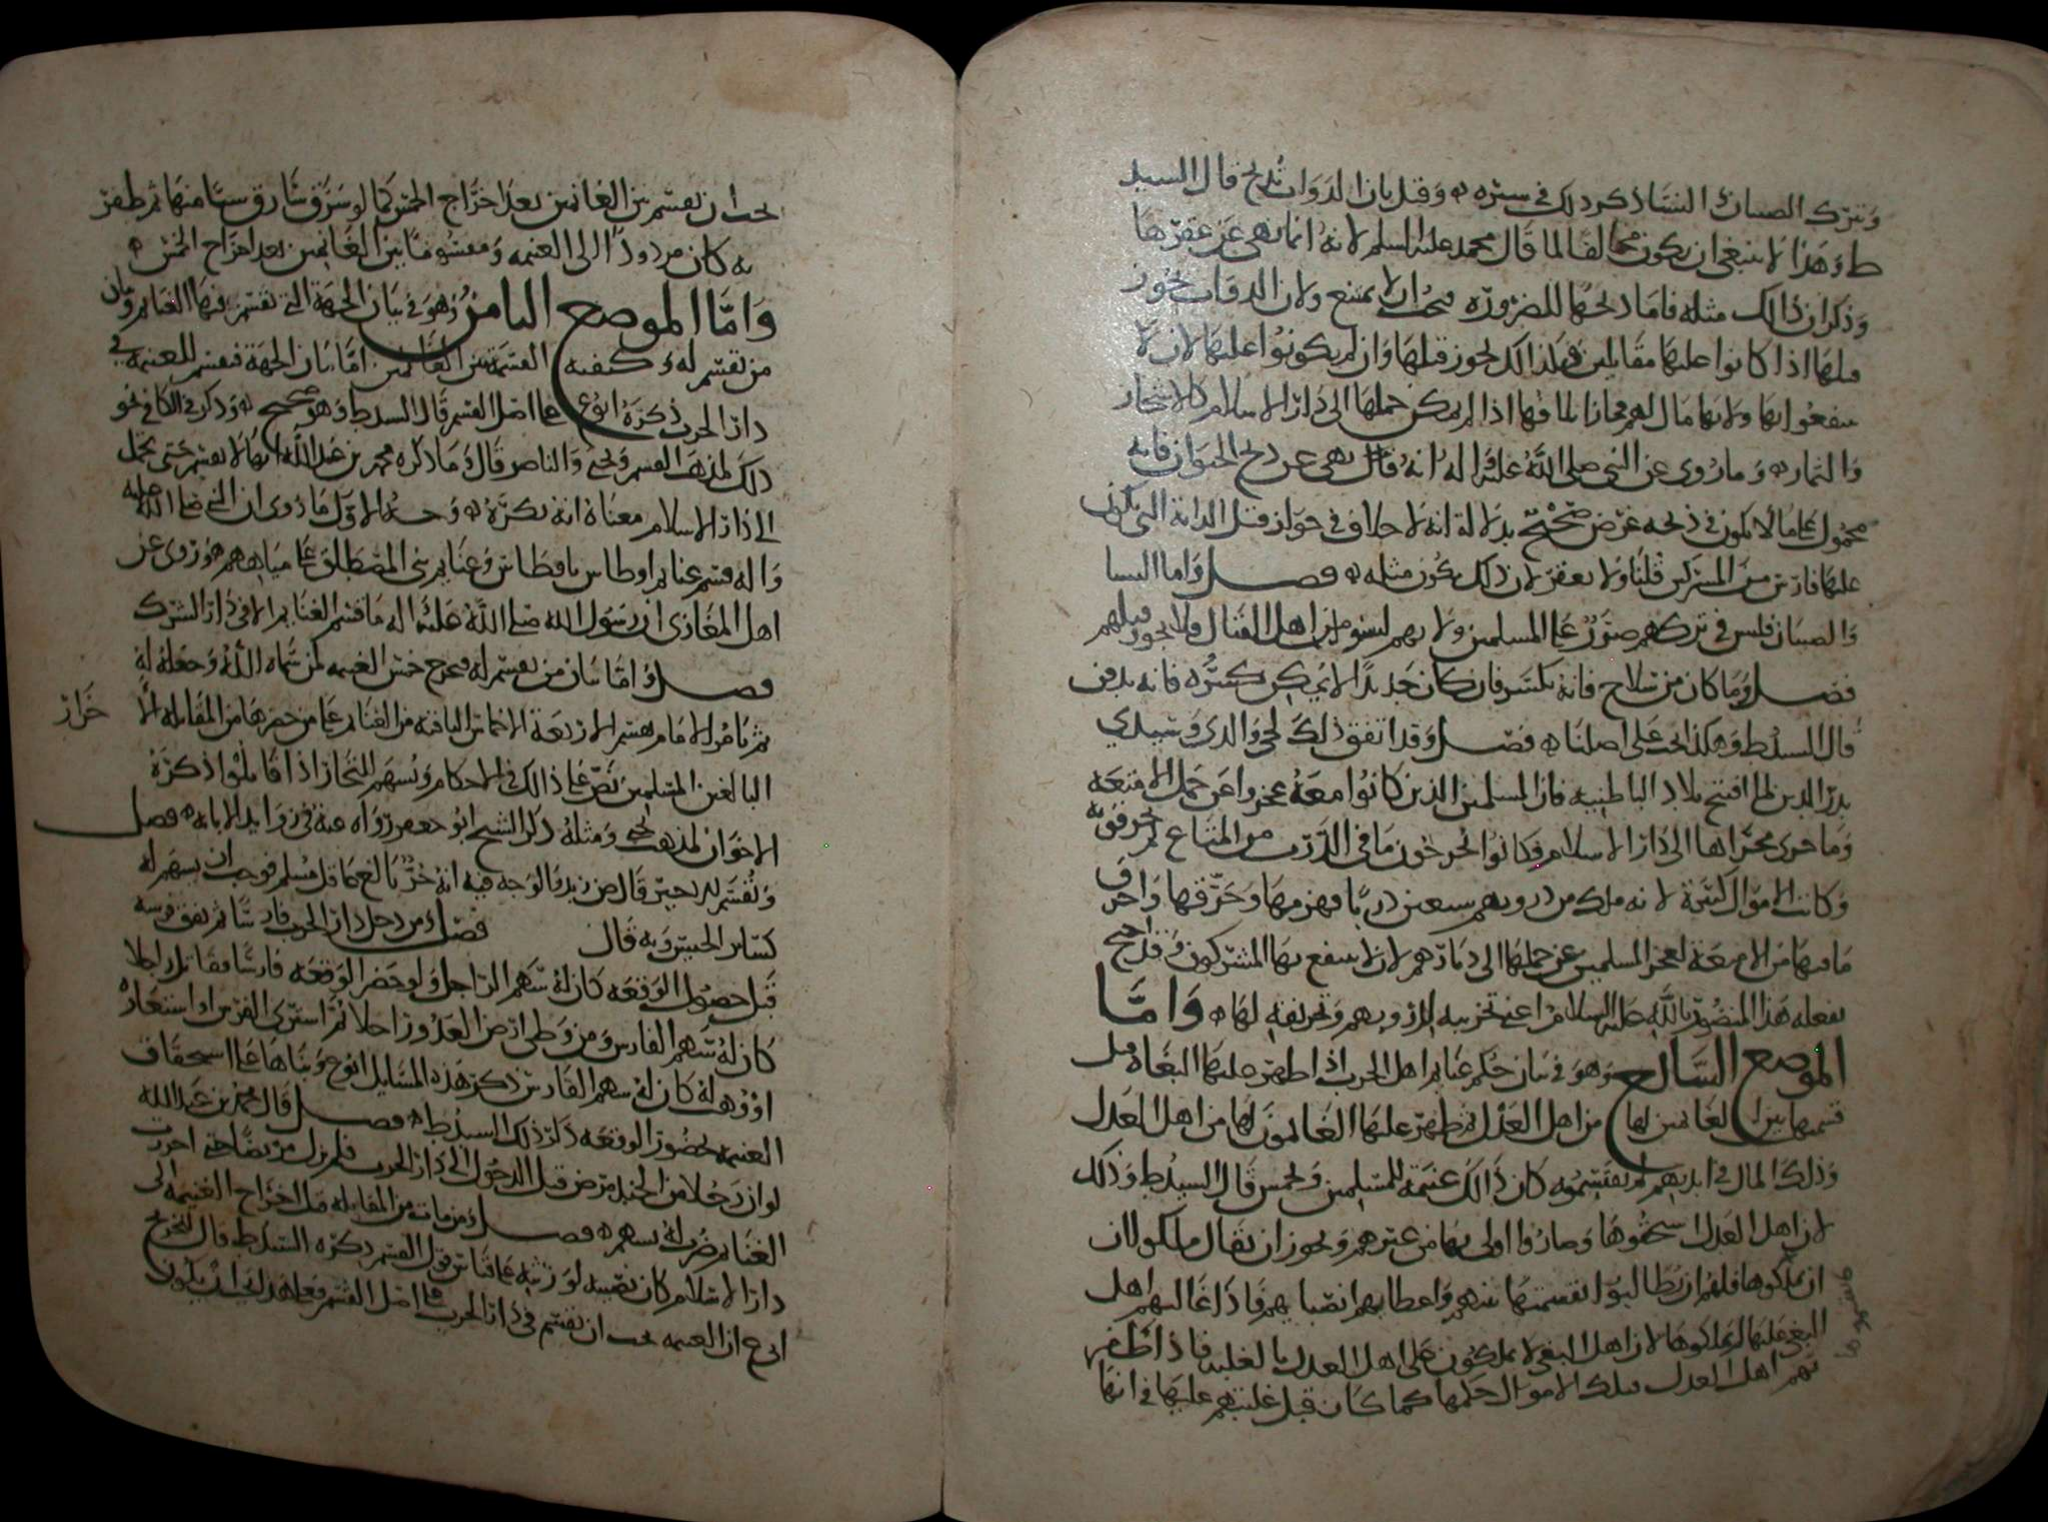 وتترك الصبيان والنساء ذكر ذلك في سيره ه وقيل بان الدواب تذبح قال السيد
ط وهذا لا ينبغي ان يكون مخالفا لما قال محمد عليه السلم لانه انما نهى عن عقرها
وذكر ان ذلك مثله فاما ذبحها للضرورة فيجب ان لا يمتنع ولان الدواب يجوز
قتلها اذا كانوا عليها مقاتلين فكذلك يجوز قتلها وان لم يكونوا عليها لان لا
ينتفعوا بها ولانها مال لهم فجاز اتلافها اذا لم يمكن حملها الى دار الاسلام كالاشجار
والثمار ه وما روى عن النبي صلى الله عليه واله انه قال نهى عن ذبح الحيوان فانه
محمول على ما لا يكون في ذبحه غرض صحيح بدلالة انه لا خلاف في جواز قتل الدابة التي يكون
عليها فارس من المشركين قلنا ولا يعقر لان ذلك يكون مثله ه فصل واما النسا
والصبيان فليس في تركهم ضرر على المسلمين ولانهم ليسوا من اهل القتال ولا يجوز قتلهم
فصل وما كان من سلاح فانه يكسر فان كان حديدا لا يمكن كسره فانه يدفن
قال السيد ط وهكذا يجب على اصلنا ه فصل وقد اتفق ذلك لحي والدي وسيدي
بدر الدين لما افتتح بلاد الباطنية فان المسلمين الذين كانوا معه عجزوا عن حمل الامتعة
وما جرى مجراها الى دار الاسلام فكانوا يخرجون ما في الدرب من المتاع ثم يحرقونه
وكانت الاموال كثيرة لانه ملك من دروبهم سبعين دربا فهزمها وحرقها واحرق
ما فيها من الامتعة لعجز المسلمين عن حملها الى ديارهم لان لا ينتفع بها المشركون وقد احتج
بفعله هذا المنصور بالله عليه السلام اعني تخريبه لدروبهم وتحريقه لها ه واما
الموضع السابع وهو في بيان حكم غنايم اهل الحرب اذا ظهر عليها البغاة قبل
قسمتها بين الغانمين لها من اهل العدل ثم ظهر عليها الغانمون لها من اهل العدل
وذلك المال في ايديهم لم يقتسموه كان ذلك غنيمة للمسلمين ويخمس قال السيد ط وذلك
لان اهل العدل استحقوها وصاروا اولى بها من غيرهم ويجوز ان يقال ملكوا لان
ان يملكوها فلهم ان يطالبوا بقسمتها بينهم واعطائهم انصباهم فاذا غالبهم اهل
البغي عليها لم يملكوها لان اهل البغي لا يملكون على اهل العدل بالغلبة فاذا ظفر
بهم اهل العدل فتلك الاموال حكمها كما كان قبل غلبتهم عليها في انها
يجب ان تقسم بين الغانمين بعد اخراج الخمس كما لو سرق سارق شيا منها ثم ظفر
به كان مردودا الى الغنيمة ومقسوما بين الغانمين بعد اخراج الخمس ه
واما الموضع الثامن وهو في بيان الجهة التي تقسم فيها الغنايم وبيان
من تقسم له وكيفية القسمة بين الغانمين اما بيان الجهة فتقسم الغنيمة في
دار الحرب ذكره ابو ع على اصل القسم قال السيد ط وهو صحيح ه وذكر في الكافي نحو
ذلك لمذهب القسم ويحيى والناصر قال وما ذكره محمد بن عبد الله انها لا تقسم حتى تحمل
الى دار الاسلام معناه انه يكره ه وجه الاول ما روى ان النبي صلى الله عليه
واله قسم غنايم اوطاس باوطاس وغنايم بني المصطلق على مياههم وروى عن
اهل المغازي ان رسول الله صلى الله عليه واله ما قسم الغنايم الا في دار الشرك
فصل واما بيان من تقسم له فيخرج خمس الغنيمة لمن سماه الله وجعله له
ثم يأمر الامام بقسم الاربعة الاخماس الباقية من الغنايم على من حضرها من المقاتلة الا
حرار
البالغين المسلمين نص على ذلك في الاحكام ويسهم للتجار اذا قاتلوا ذكره
الاخوان لمذهب يحيى ومثله ذكر الشيخ ابو جعفر رواه عنه في زوايد الابانة ه فصل
وتقسم للاجير قال ض زيد والوجه فيه انه حر بالغ عاقل مسلم فوجب ان يسهم له
كساير الجيش وبه قال فصل ومن دخل دار الحرب فارسا ثم نفق فرسه
قبل حصول الوقعة كان له سهم الراجل ولو حضر الوقعة فارسا فقاتل راجلا
كان له سهم الفارس ومن وطى ارض العدو راجلا ثم اشترى الفرس او استعاره
او وهب له كان له سهم الفارس ذكر هذه المسايل ابو ع وبناها على استحقاق
الغنيمة بحضور الوقعة ذكر ذلك السيد ط ه فصل قال محمد بن عبد الله
لو ان رجلا من الجند مرض قبل الدخول الى دار الحرب فلم يزل مريضا حتى احرزت
الغنايم ضرب له بسهم ه فصل ومن مات من المقاتلة قبل اخراج الغنيمة الى
دار الاسلام كان نصيبه لورثته على قياس قول القسم ذكره السيد ط قال لتخريج
ابي ع ان الغنيمة يجب ان تقسم في دار الحرب على اصل القسم فعلى هذا يجب ان يكون